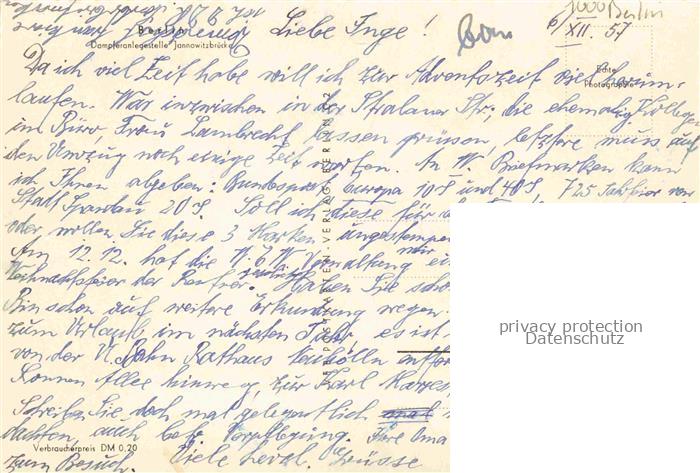 Liebe Inge!
1000 Berlin
6/XII. 57
Berlin
Dampferanlegestelle Jannowitzbrücke
Echte
Photographie
Da ich viel Zeit habe will ich zur Adventszeit viel herum-
laufen. War inzwischen in der Stralauer Str.; die ehemalig. Kollegen
im Büro, Frau Lambrecht lassen grüssen, letztere muss auf
den Umzug noch einige Zeit warten. An W. Briefmarken kann
ich Ihnen abgeben: Bundespost Europa 10 und 40, 725 Jahrfeier von
Stadt Spandau 20. Soll ich diese für
oder wollen Sie diese 3 Marken ungestempelt
Am 12.12. hat die Verwaltung
Weihnachtsfeier der Rentner. Haben Sie scho
Bin schon auf weitere Erkundung wegen
zum Urlaub im nächsten Jahr, es ist
von der U. Bahn Rathaus Neukölln entfer
Sonnen Allee hinweg, zur Karl Marx
Schreiben Sie doch mal gelegentlich
dachten, auch betr. Verpflegung. Ihre Oma
zum Besuch. Viele herzl. Grüsse
Verbraucherpreis DM 0,20
privacy protection
Datenschutz